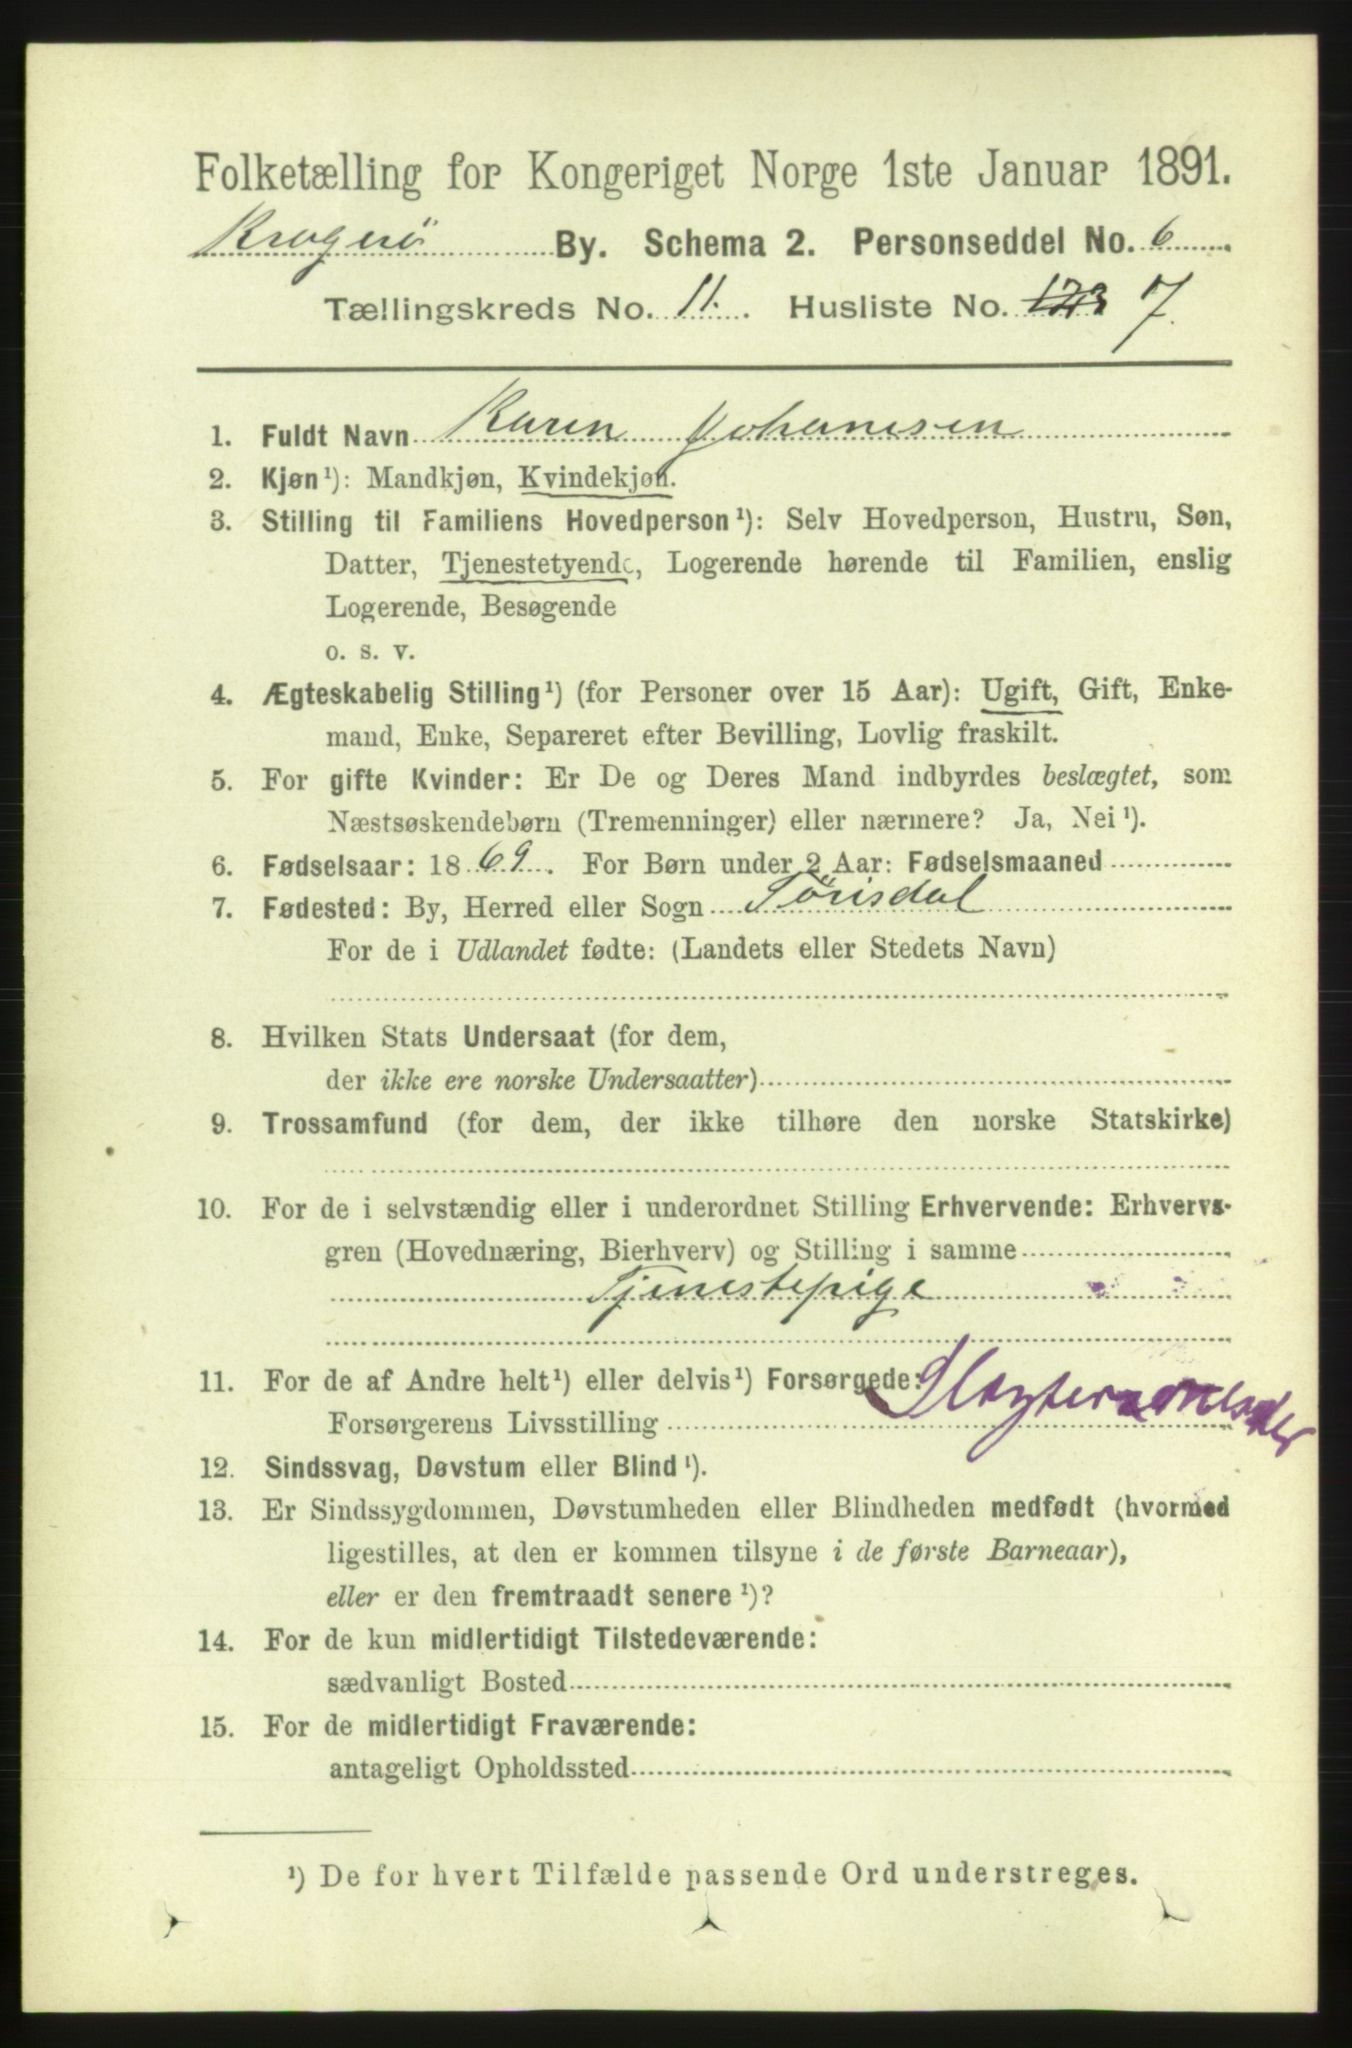 Folketælling for Kongeriget Norge 1ste Januar 1891.
Kragerö By. Schema 2. Personseddel No. 6
Tællingskreds No. 11. Husliste No. 123 7.
1. Fuldt Navn Karen Johannesen
2. Kjøn¹): Mandkjøn, Kvindekjøn.
3. Stilling til Familiens Hovedperson¹): Selv Hovedperson, Hustru, Søn,
Datter, Tjenestetyende, Logerende hørende til Familien, enslig
Logerende, Besøgende
o. s. v.
4. Ægteskabelig Stilling¹) (for Personer over 15 Aar): Ugift, Gift, Enke-
mand, Enke, Separeret efter Bevilling, Lovlig fraskilt.
5. For gifte Kvinder: Er De og Deres Mand indbyrdes beslægtet, som
Næstsøskendebørn (Tremenninger) eller nærmere? Ja, Nei¹).
6. Fødselsaar: 1869. For Børn under 2 Aar: Fødselsmaaned
7. Fødested: By, Herred eller Sogn Törisdal
For de i Udlandet fødte: (Landets eller Stedets Navn)
8. Hvilken Stats Undersaat (for dem,
der ikke ere norske Undersaatter)
9. Trossamfund (for dem, der ikke tilhøre den norske Statskirke)
10. For de i selvstændig eller i underordnet Stilling Erhvervende: Erhvervs-
gren (Hovednæring, Bierhverv) og Stilling i samme
Tjenestepige
11. For de af Andre helt¹) eller delvis¹) Forsørgede:
Forsørgerens Livsstilling
12. Sindssvag, Døvstum eller Blind¹).
13. Er Sindssygdommen, Døvstumheden eller Blindheden medfødt (hvormed
ligestilles, at den er kommen tilsyne i de første Barneaar),
eller er den fremtraadt senere¹)?
14. For de kun midlertidigt Tilstedeværende:
sædvanligt Bosted
15. For de midlertidigt Fraværende:
antageligt Opholdssted
¹) De for hvert Tilfælde passende Ord understreges.